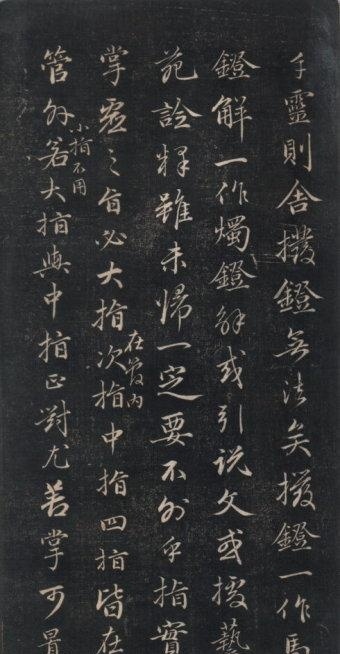 手靈則舍撥鐙無法矣撥鐙一作馬
鐙解一作燭鐙解或引說文或援藝
苑詮釋雖未歸一定要不外乎指實
在管內
掌虛之旨必大指次指中指四指皆在
小指不用
管外若大指與中指正對尤若掌可